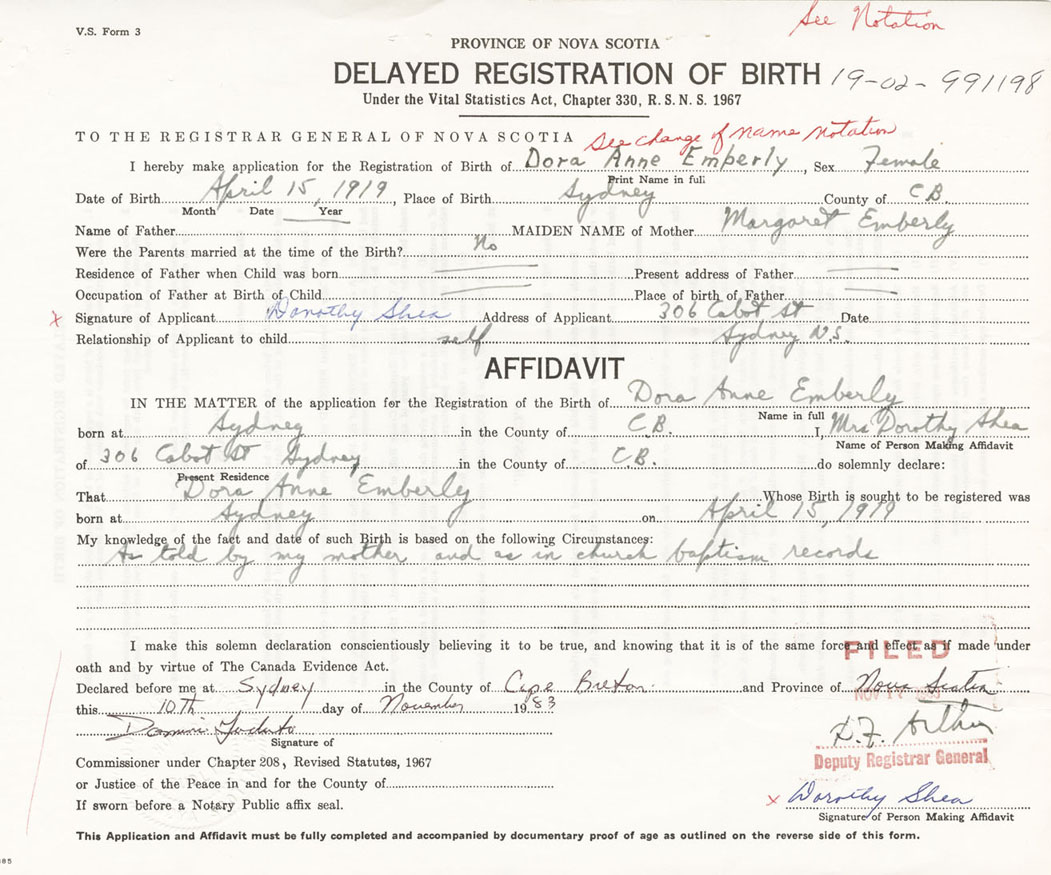 See Notation
V.S. Form 3
PROVINCE OF NOVA SCOTIA
DELAYED REGISTRATION OF BIRTH 19-02-991198
Under the Vital Statistics Act, Chapter 330, R.S.N.S. 1967
TO THE REGISTRAR GENERAL OF NOVA SCOTIA See change of name notation
I hereby make application for the Registration of Birth of Dora Anne Emberly, Sex Female
Print Name in full
Date of Birth April 15, 1919, Place of Birth Sydney County of C.B.
Month Date Year
Name of Father MAIDEN NAME of Mother Margaret Emberly
Were the Parents married at the time of the Birth? No
Residence of Father when Child was born Present address of Father
Occupation of Father at Birth of Child Place of birth of Father
x Signature of Applicant Dorothy Shea Address of Applicant 306 Cabot St Date
Relationship of Applicant to child self Sydney N.S.
AFFIDAVIT
IN THE MATTER of the application for the Registration of the Birth of Dora Anne Emberly
Name in full
born at Sydney in the County of C.B. I, Mrs Dorothy Shea
Name of Person Making Affidavit
of 306 Cabot St Sydney in the County of C.B. do solemnly declare:
Present Residence
That Dora Anne Emberly Whose Birth is sought to be registered was
born at Sydney on April 15, 1919
My knowledge of the fact and date of such Birth is based on the following Circumstances:
As told by my mother and as in church baptism records
I make this solemn declaration conscientiously believing it to be true, and knowing that it is of the same force and effect as if made under
oath and by virtue of The Canada Evidence Act.
FILED
Declared before me at Sydney in the County of Cape Breton and Province of Nova Scotia
this 10th day of November 1983
Signature of
Deputy Registrar General
Commissioner under Chapter 208, Revised Statutes, 1967
or Justice of the Peace in and for the County of
If sworn before a Notary Public affix seal.
x Dorothy Shea
Signature of Person Making Affidavit
This Application and Affidavit must be fully completed and accompanied by documentary proof of age as outlined on the reverse side of this form.